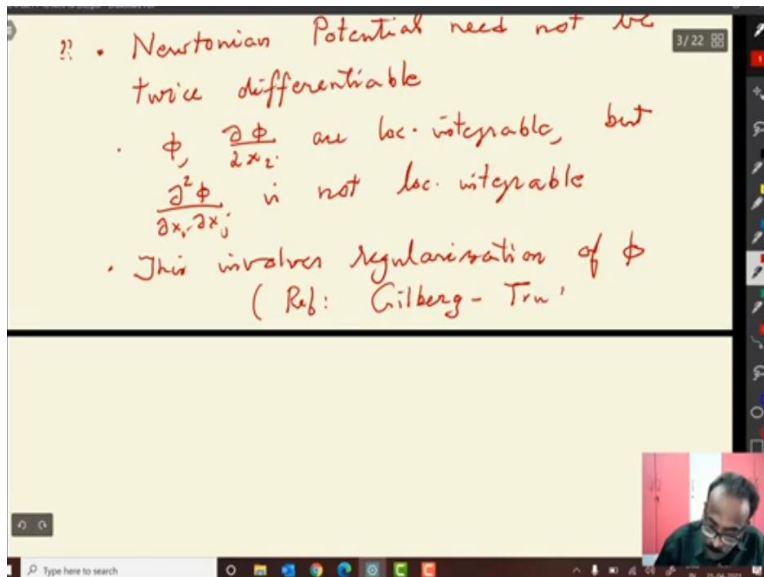 • Newtonian Potential need not be
3/22
twice differentiable
• ϕ, ∂ϕ/∂xᵢ are loc. integrable, but
∂²ϕ/∂xᵢ∂xⱼ is not loc. integrable
• This involves regularisation of ϕ
( Ref: Gilberg - Tru
Type here to search